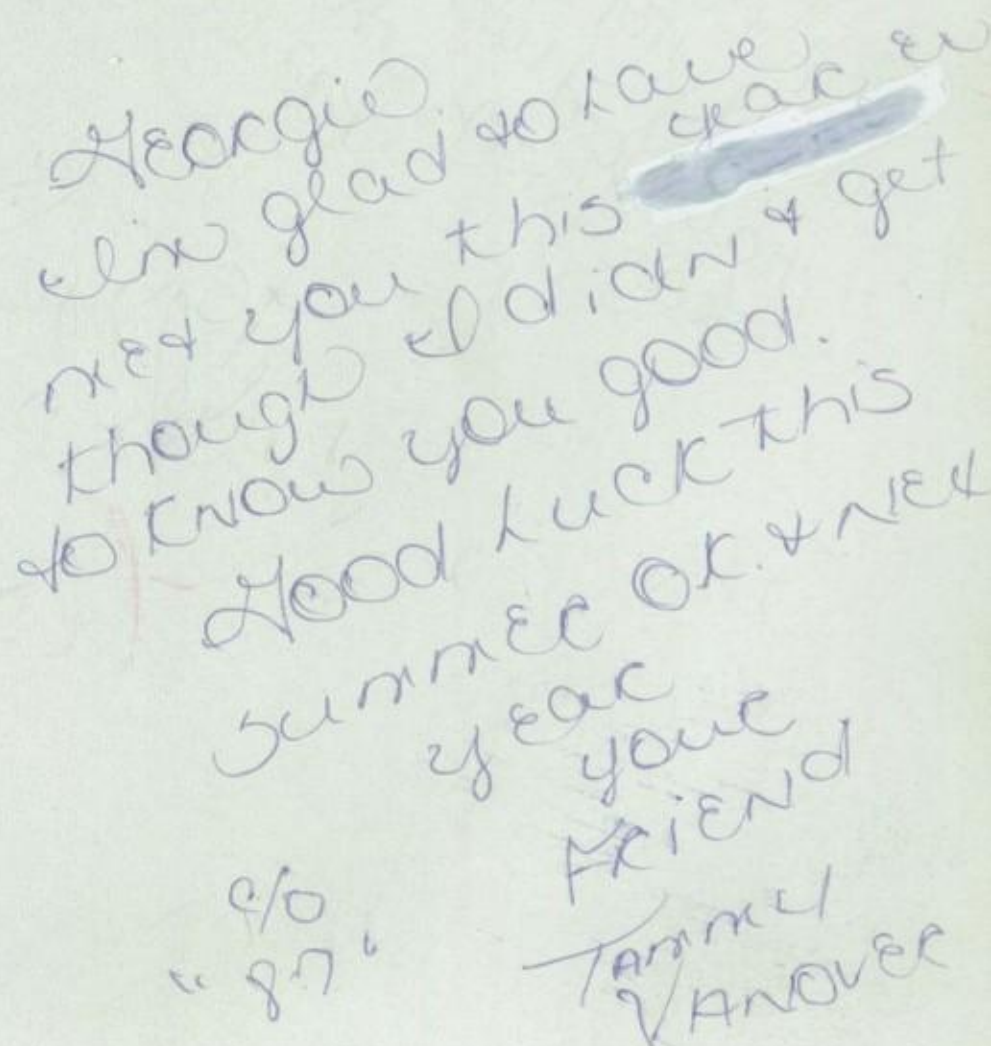 Georgie,
I'm glad to have
met you this year ev
though I didn't get
to know you good.
Good Luck this
summer O.K. & Next
year
your
FRIEND
c/o
"87"
TAMMY
VANOVER